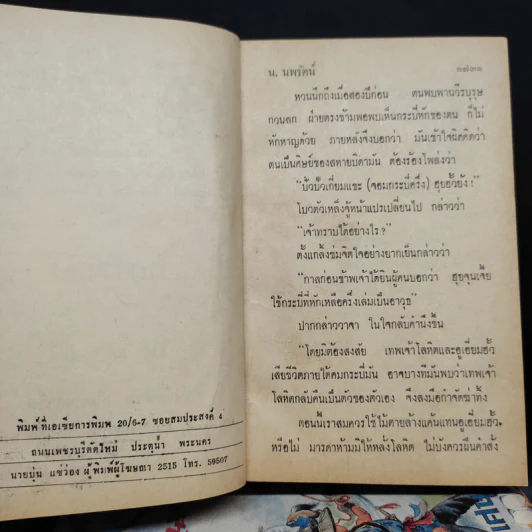 พิมพ์ ที่เอเซียการพิมพ์ 20/6-7 ซอยสมประสงค์ 4
ถนนเพชรบุรีตัดใหม่ ประตูน้ำ พระนคร
นายบุ่น แซ่ว่อง ผู้พิมพ์ผู้โฆษณา 2515 โทร. 59507
น. นพรัตน์
หวนนึกถึงเมื่อสองปีก่อน ตนพบพานวีรบุรุษ
กวนลก ฝ่ายตรงข้ามพอพบเห็นกระบี่หักของตน ก็ไม่
หักหาญด้วย ภายหลังจึงบอกว่า มันเข้าใจผิดคิดว่า
ตนเป็นศิษย์ของสหายบิดามัน ต้องร้องโพล่งว่า
"ปั้วปั๊วเกี่ยมแชะ (จอมกระบี่ครึ่ง) ฮุยฮั้วยัง!"
โบวตัวเหล็งจู้หน้าแปรเปลี่ยนไป กล่าวว่า
"เจ้าทราบได้อย่างไร?"
ตั้งแกล้งข่มจิตใจอย่างยากเย็นกล่าวว่า
"กาลก่อนข้าพเจ้าได้ยินผู้คนบอกว่า ฮุยจุนเจ๊ย
ใช้กระบี่ที่หักเหลือครึ่งเล่มเป็นอาวุธ"
ปากกล่าววาจา ในใจกลับคำนึงขึ้น
"โดยมิต้องสงสัย เทพเจ้าโลหิตและอูเอี่ยมฮั้ว
เสียชีวิตภายใต้คมกระบี่มัน อาจบางทีมันพบว่าเทพเจ้า
โลหิตกลับคืนเป็นตัวของตัวเอง จึงลงมือกำจัดฆ่าทิ้ง
ตอนนี้เราสมควรใช้ไม้ตายล้างแค้นแทนอูเอี่ยมฮั้ว,
หรือไม่ มารดาห้ามมิให้หลั่งโลหิต ไม่บังควรฝืนคำสั่ง